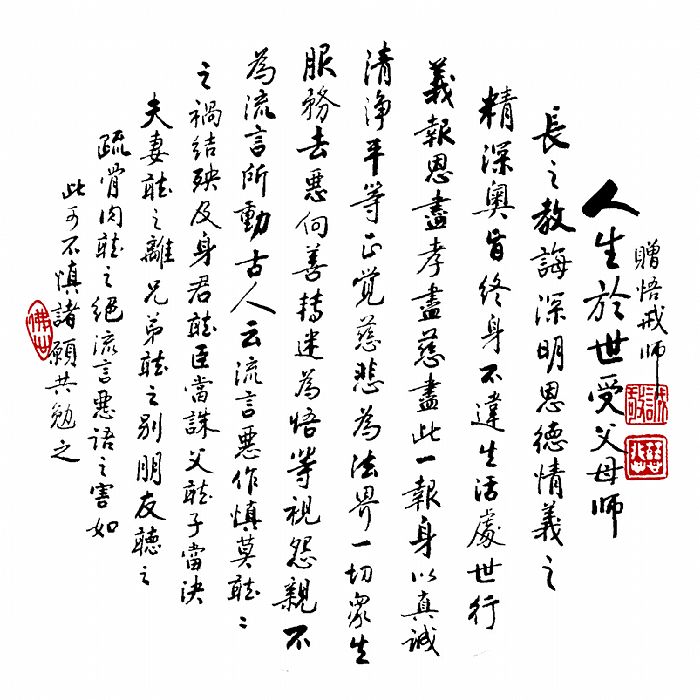 贈悟戒師
人生於世受父母師
長之教誨深明恩德情義之
精深奧旨終身不違生活處世行
義報恩盡孝盡慈盡此一報身以真誠
清淨平等正覺慈悲為法界一切眾生
服務去惡向善轉迷為悟等視怨親不
為流言所動古人云流言惡作慎莫聼〻
之禍結殃及身君聼臣當誅父聼子當決
夫妻聼之離兄弟聼之別朋友聽之
疏骨肉聼之絕流言惡語之害如
此可不慎諸願共勉之